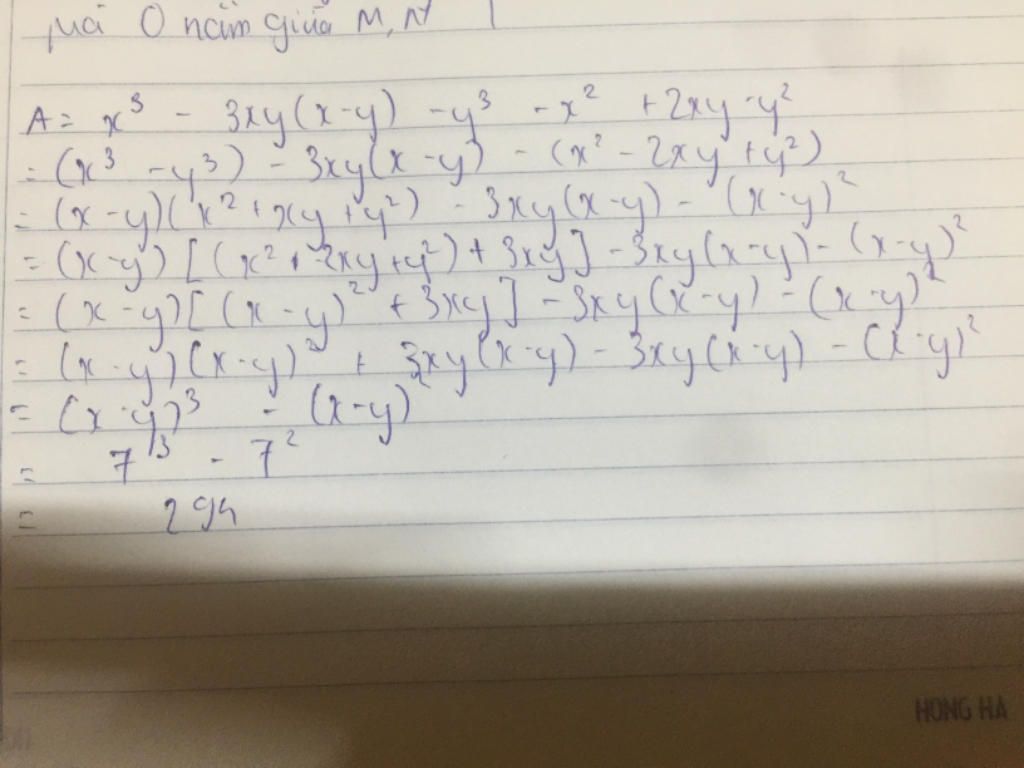 mà O nằm giữa M, N
A = x³ - 3xy(x-y) - y³ - x² + 2xy - y²
= (x³ - y³) - 3xy(x - y) - (x² - 2xy + y²)
= (x - y)(x² + xy + y²) - 3xy(x - y) - (x - y)²
= (x - y) [(x² - 2xy + y²) + 3xy] - 3xy(x - y) - (x - y)²
= (x - y)[(x - y)² + 3xy] - 3xy(x - y) - (x - y)²
= (x - y)(x - y)² + 3xy(x - y) - 3xy(x - y) - (x - y)²
= (x - y)³ - (x - y)²
= 7³ - 7²
= 294
HONG HA